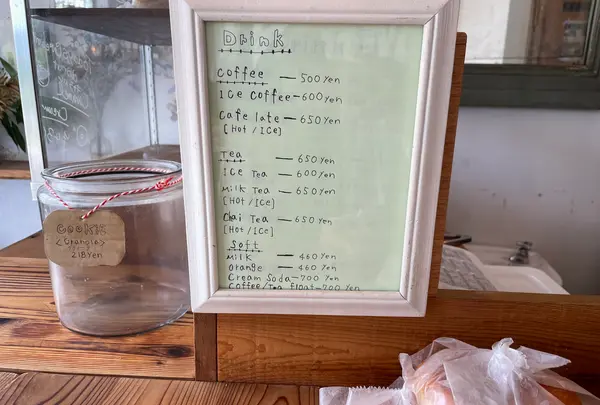 Drink
Coffee — 500 Yen
Ice Coffee — 600 Yen
Cafe late — 650 Yen
[Hot / Ice]
Tea — 650 Yen
Ice Tea — 600 Yen
Milk Tea — 650 Yen
[Hot / Ice]
Chai Tea — 650 Yen
[Hot / Ice]
Soft
Milk — 460 Yen
Orange — 460 Yen
Cream Soda — 700 Yen
Coffee/Tea float — 700 Yen
Cookie
<Orange>
218Yen